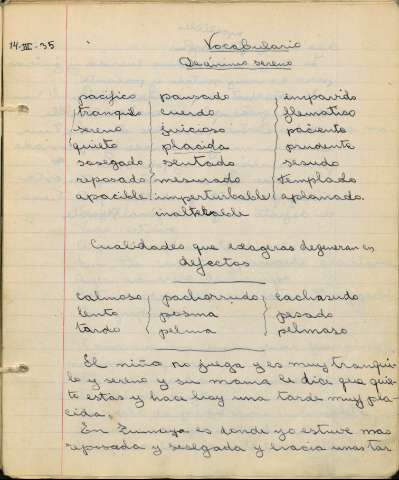 14-III-35
Vocabulario
De ánimo sereno
pacifico pausado impavido
tranquilo cuerdo flematico
sereno juicioso paciente
quieto placida prudente
sosegado sentado sesudo
reposado mesurado templado
apacible imperturbable aplomado.
inalterable
Cualidades que exageras degeneran en
defectos
calmoso pachorrudo cachasudo
lento posma pesado
tardo pelma pelmaso
El niño no juega y es muy tranqui-
lo y sereno y su mama le dice que quie-
to estas y hace hoy una tarde muy pla-
cida.
En Zumaya es donde yo estuve mas
reposada y sesegada y hacia unas tar